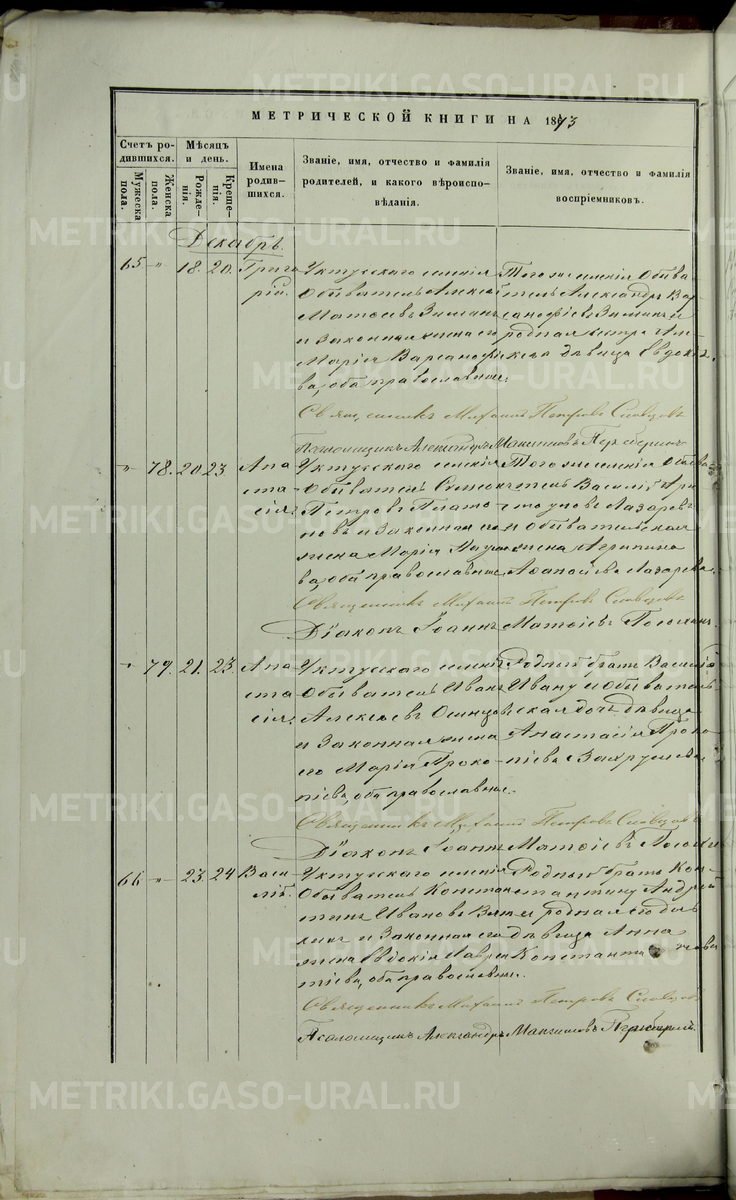 МЕТРИЧЕСКОЙ КНИГИ НА 1873
Счетъ родившихся.
Мужеска пола.
Женска пола.
Мѣсяцъ и день.
Рожденія.
Крещенія.
Имена родившихся.
Званіе, имя, отчество и фамилія родителей, и какого вѣроисповѣданія.
Званіе, имя, отчество и фамилія воспріемниковъ.
Декабрь.
65 " 18. 20. Григорій.
Уктусскаго селенія
Обыватель Алексѣй
Матѳіевъ Зиминъ
и Законная жена его
Марія Варсанофіева,
оба православные.
Того же селенія Обыватель
Александръ Варсанофіевъ
Зиминъ и
родная сестра
дѣвица Евдокія.
Священникъ Михаилъ Петровъ Словцовъ
Псаломщикъ Александръ Максимовъ
" 78. 20 23. Анастасія.
Уктусскаго селенія
Обыватель Симеонъ
Петровъ
и Законная его
жена Марія
оба православные.
Того же селенія
Василій
Лазаревъ
и обывательская
жена Агрипина
Лазарева.
Священникъ Михаилъ Петровъ Словцовъ
Діаконъ Іоаннъ Матѳіевъ
" 79. 21. 23. Анастасія.
Уктусскаго селенія
Обыватель Иванъ
Алексѣевъ
и Законная жена
его Марія Прокопіева,
оба православные.
Родный братъ Василій
Ивану и обывательская
дочь дѣвица
Анастасія Прокопіева
Вахрушева.
Священникъ Михаилъ Петровъ Словцовъ
Діаконъ Іоаннъ Матѳіевъ
66 " 23. 24 Василій.
Уктусскаго селенія
Обыватель Константинъ
Ивановъ
и Законная его
жена Евдокія Лаврентіева,
оба православные.
Родный братъ Константину
Андрей
и родная его
дѣвица Анна
Константинова
Священникъ Михаилъ Петровъ Словцовъ
Псаломщикъ Александръ Максимовъ
METRIKI.GASO-URAL.RU